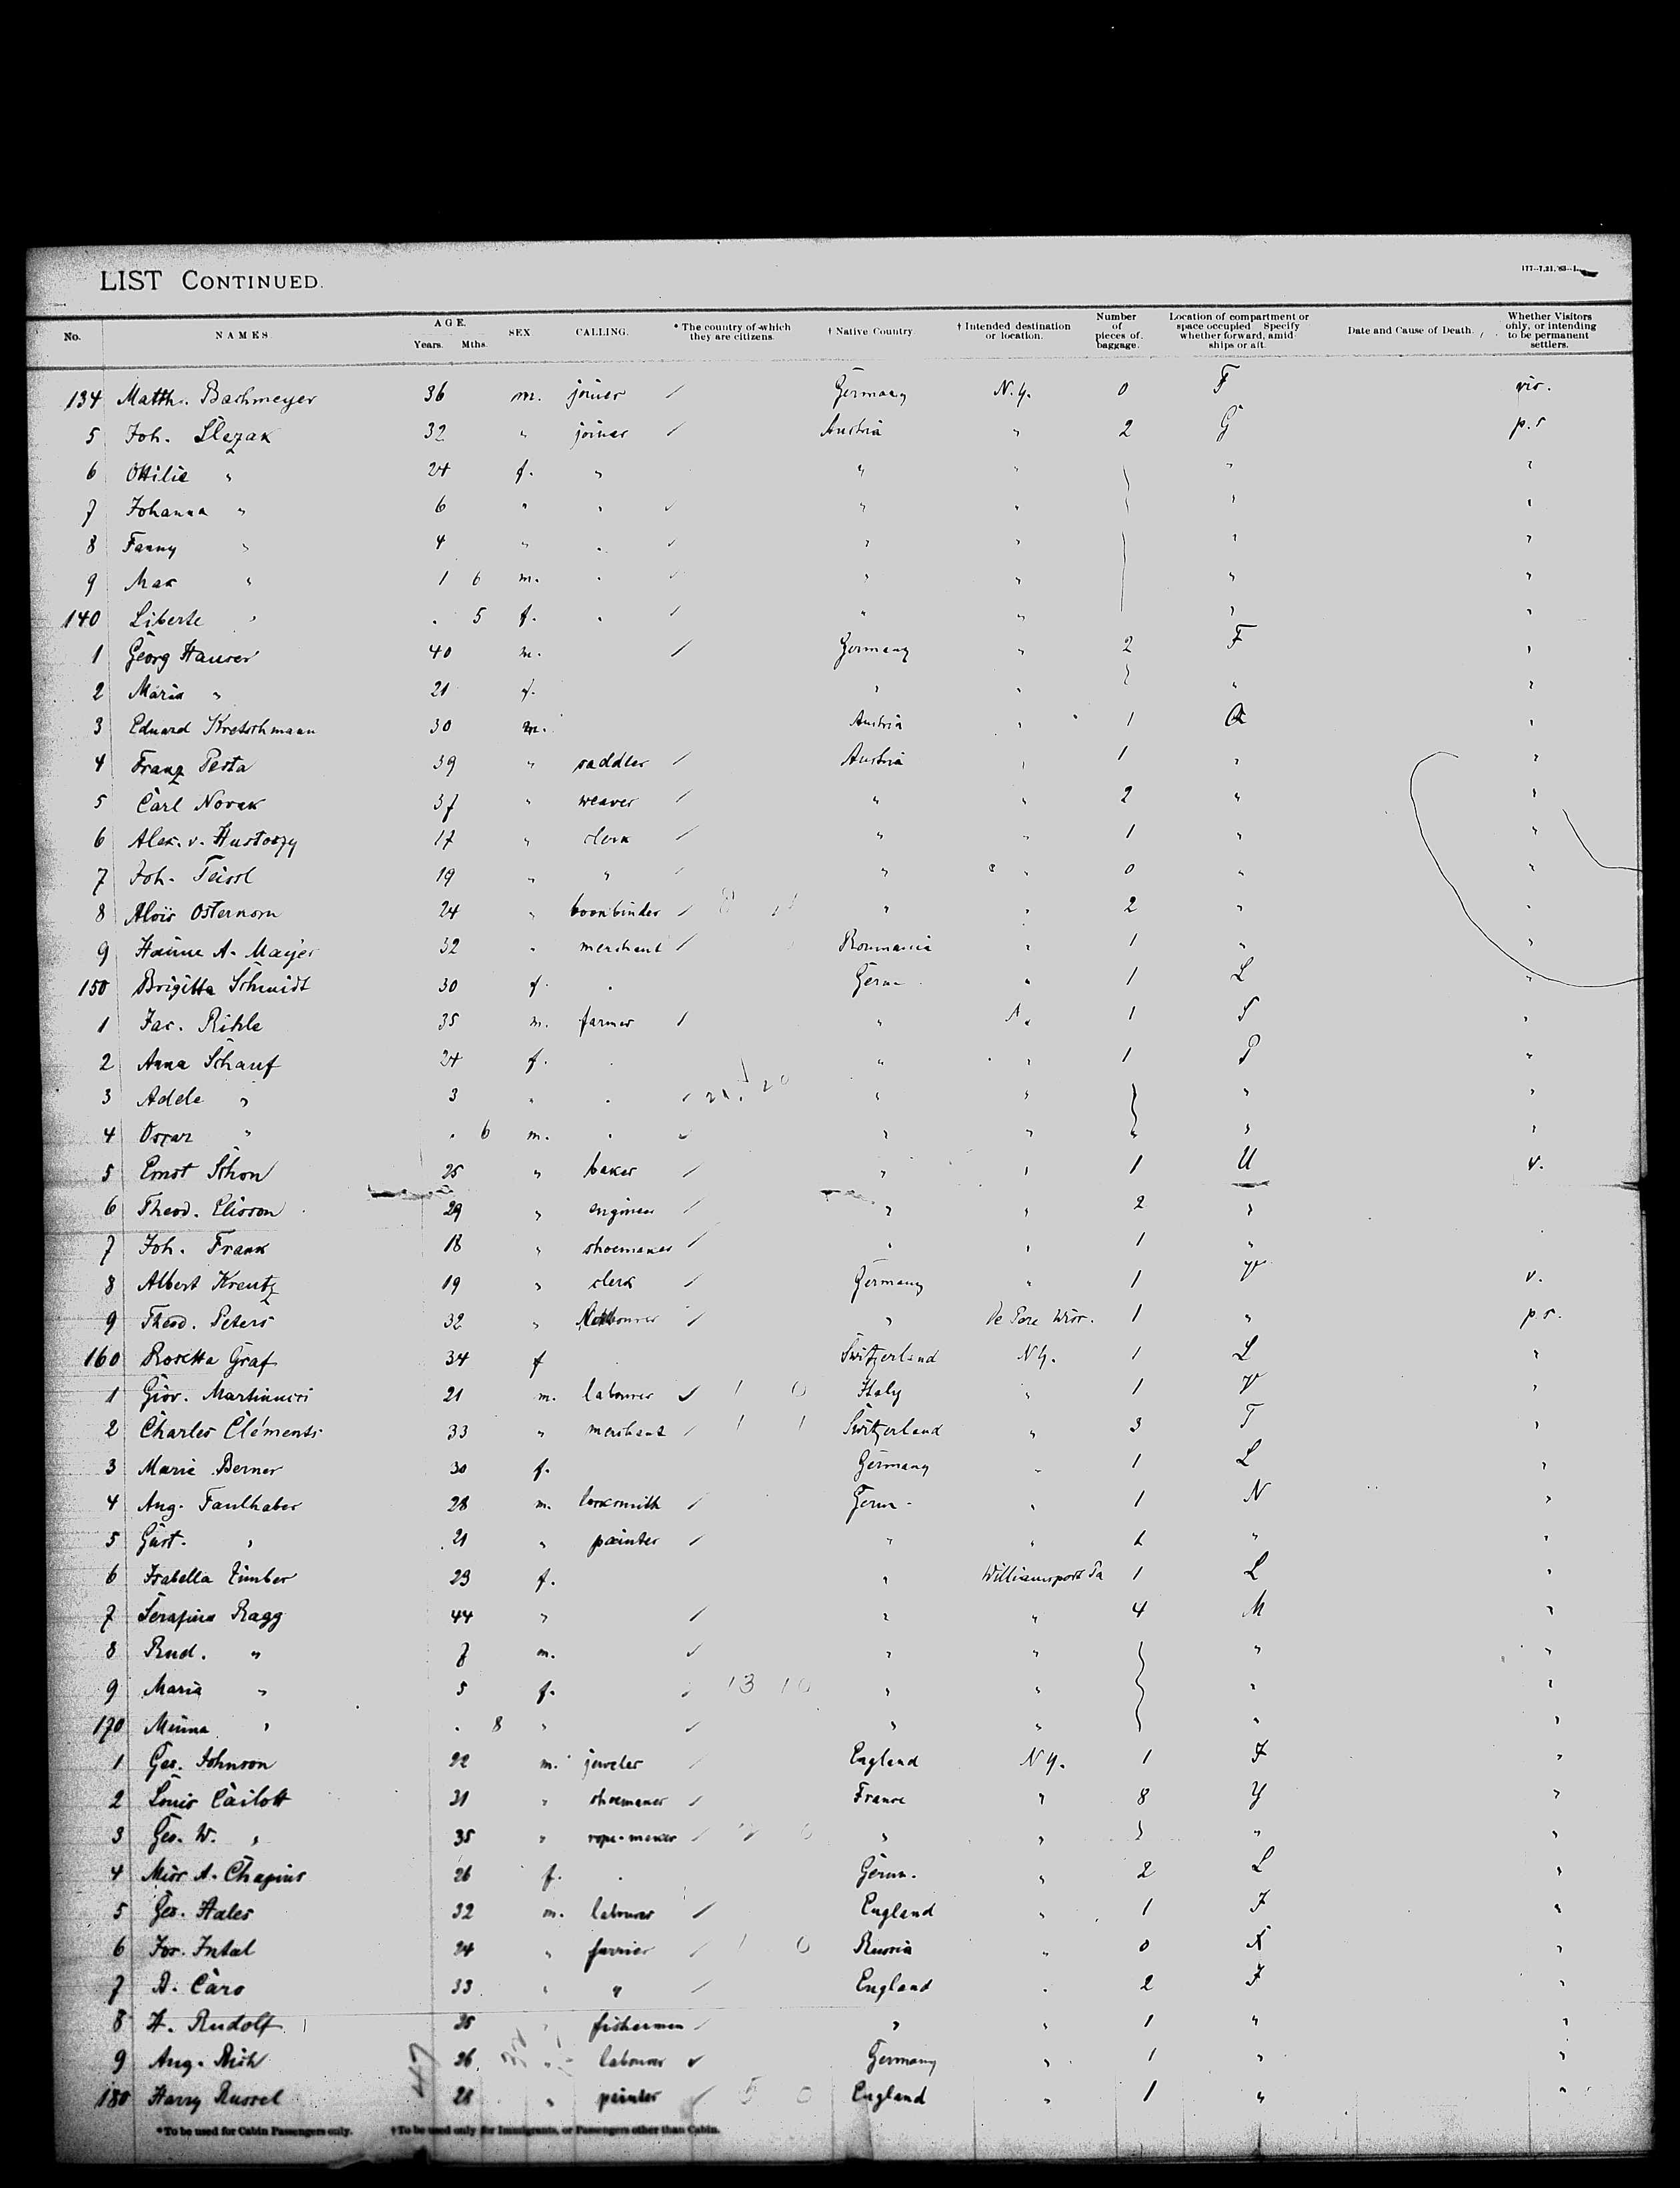 LIST CONTINUED.
No. NAMES. AGE. Years. Mths. SEX CALLING. * The country of which they are citizens. † Native Country. † Intended destination or location. Number of pieces of baggage. Location of compartment or space occupied Specify whether forward, amidships or aft. Date and Cause of Death. Whether Visitors only, or intending to be permanent settlers.
134 Matth. Bachmeyer 36 m. joiner / Germany N.Y. 0 F vis.
5 Joh. Slezak 32 " joiner / Austria " 2 G p.s
6 Ottilie " 24 f. " " " " "
7 Johanna " 6 " " " " " "
8 Fanny " 4 " " " " " "
9 Max " 1 6 m. " " " " "
140 Liberte " . 5 f. " / " " " "
1 Georg Hauser 40 m. / Germany " 2 F "
2 Maria " 21 f. " " " "
3 Eduard Kretschmann 30 m. Austria " 1 "
4 Franz Pesta 39 " saddler / Austria " 1 " "
5 Carl Novak 37 " weaver / " " 2 " "
6 Alex. v. 17 " clerk / " " 1 " "
7 Joh. Teissl 19 " " / " " 0 " "
8 Alois Osternom 24 " bookbinder / " " 2 " "
9 A. Mayer 32 " merchant / Roumania " 1 " "
150 Brigitta Schmidt 30 f. . Germ. " 1 L "
1 Jac. Rihle 35 m. farmer / " 1 S "
2 Anna Schauf 24 f. . " " 1 P "
3 Adele " 3 " . / " " " "
4 Oscar " . 6 m. . " " " " "
5 Ernst Schon 25 " baker / " " 1 U v.
6 Theod. Elisson 29 " engineer / " " 2 "
7 Joh. Frank 18 " shoemaker / " " 1 "
8 Albert Kreutz 19 " clerk / Germany " 1 V v.
9 Theod. Peters 32 " / " De Pere Wisc. 1 " p.s.
160 Rosetta Graf 34 f . Switzerland N.Y. 1 L "
1 Giov. Martinucci 21 m. labourer 1 0 Italy " 1 V "
2 Charles Cléments 33 " merchant / 1 1 Switzerland " 3 T "
3 Marie Berner 30 f. Germany " 1 L "
4 Aug. Faulhaber 28 m. locksmith / Germ. " 1 N "
5 Gust. " 21 " painter / " " 1 " "
6 Isabella Zimber 23 f. " Williamsport Pa 1 L "
7 Serafina Ragg 44 " / " " 4 M "
8 Rud. " 7 m. " " " "
9 Maria " 5 f. 13 10 " " " "
170 Minna " . 8 " " " " "
1 Geo. Johnson 22 m. jeweler / England N.Y. 1 F "
2 Louis Cailott 31 " shoemaker / France " 8 Y "
3 Geo. W. " 35 " rope-maker / " " " "
4 Miss A. Chapius 26 f. . Germ. " 2 L "
5 Geo. Hales 32 m. labourer / England " 1 F "
6 Jos. Intal 24 " furrier / 1 0 Russia " 0 X "
7 A. Caro 33 " " / England " 2 F "
8 H. Rudolf 35 " fisherman / " " 1 " "
9 Aug. 26 " labourer Germany " 1 " "
180 Harry Russel 28 " painter / 5 0 England " 1 " "
47
*To be used for Cabin Passengers only. †To be used only for Immigrants, or Passengers other than Cabin.